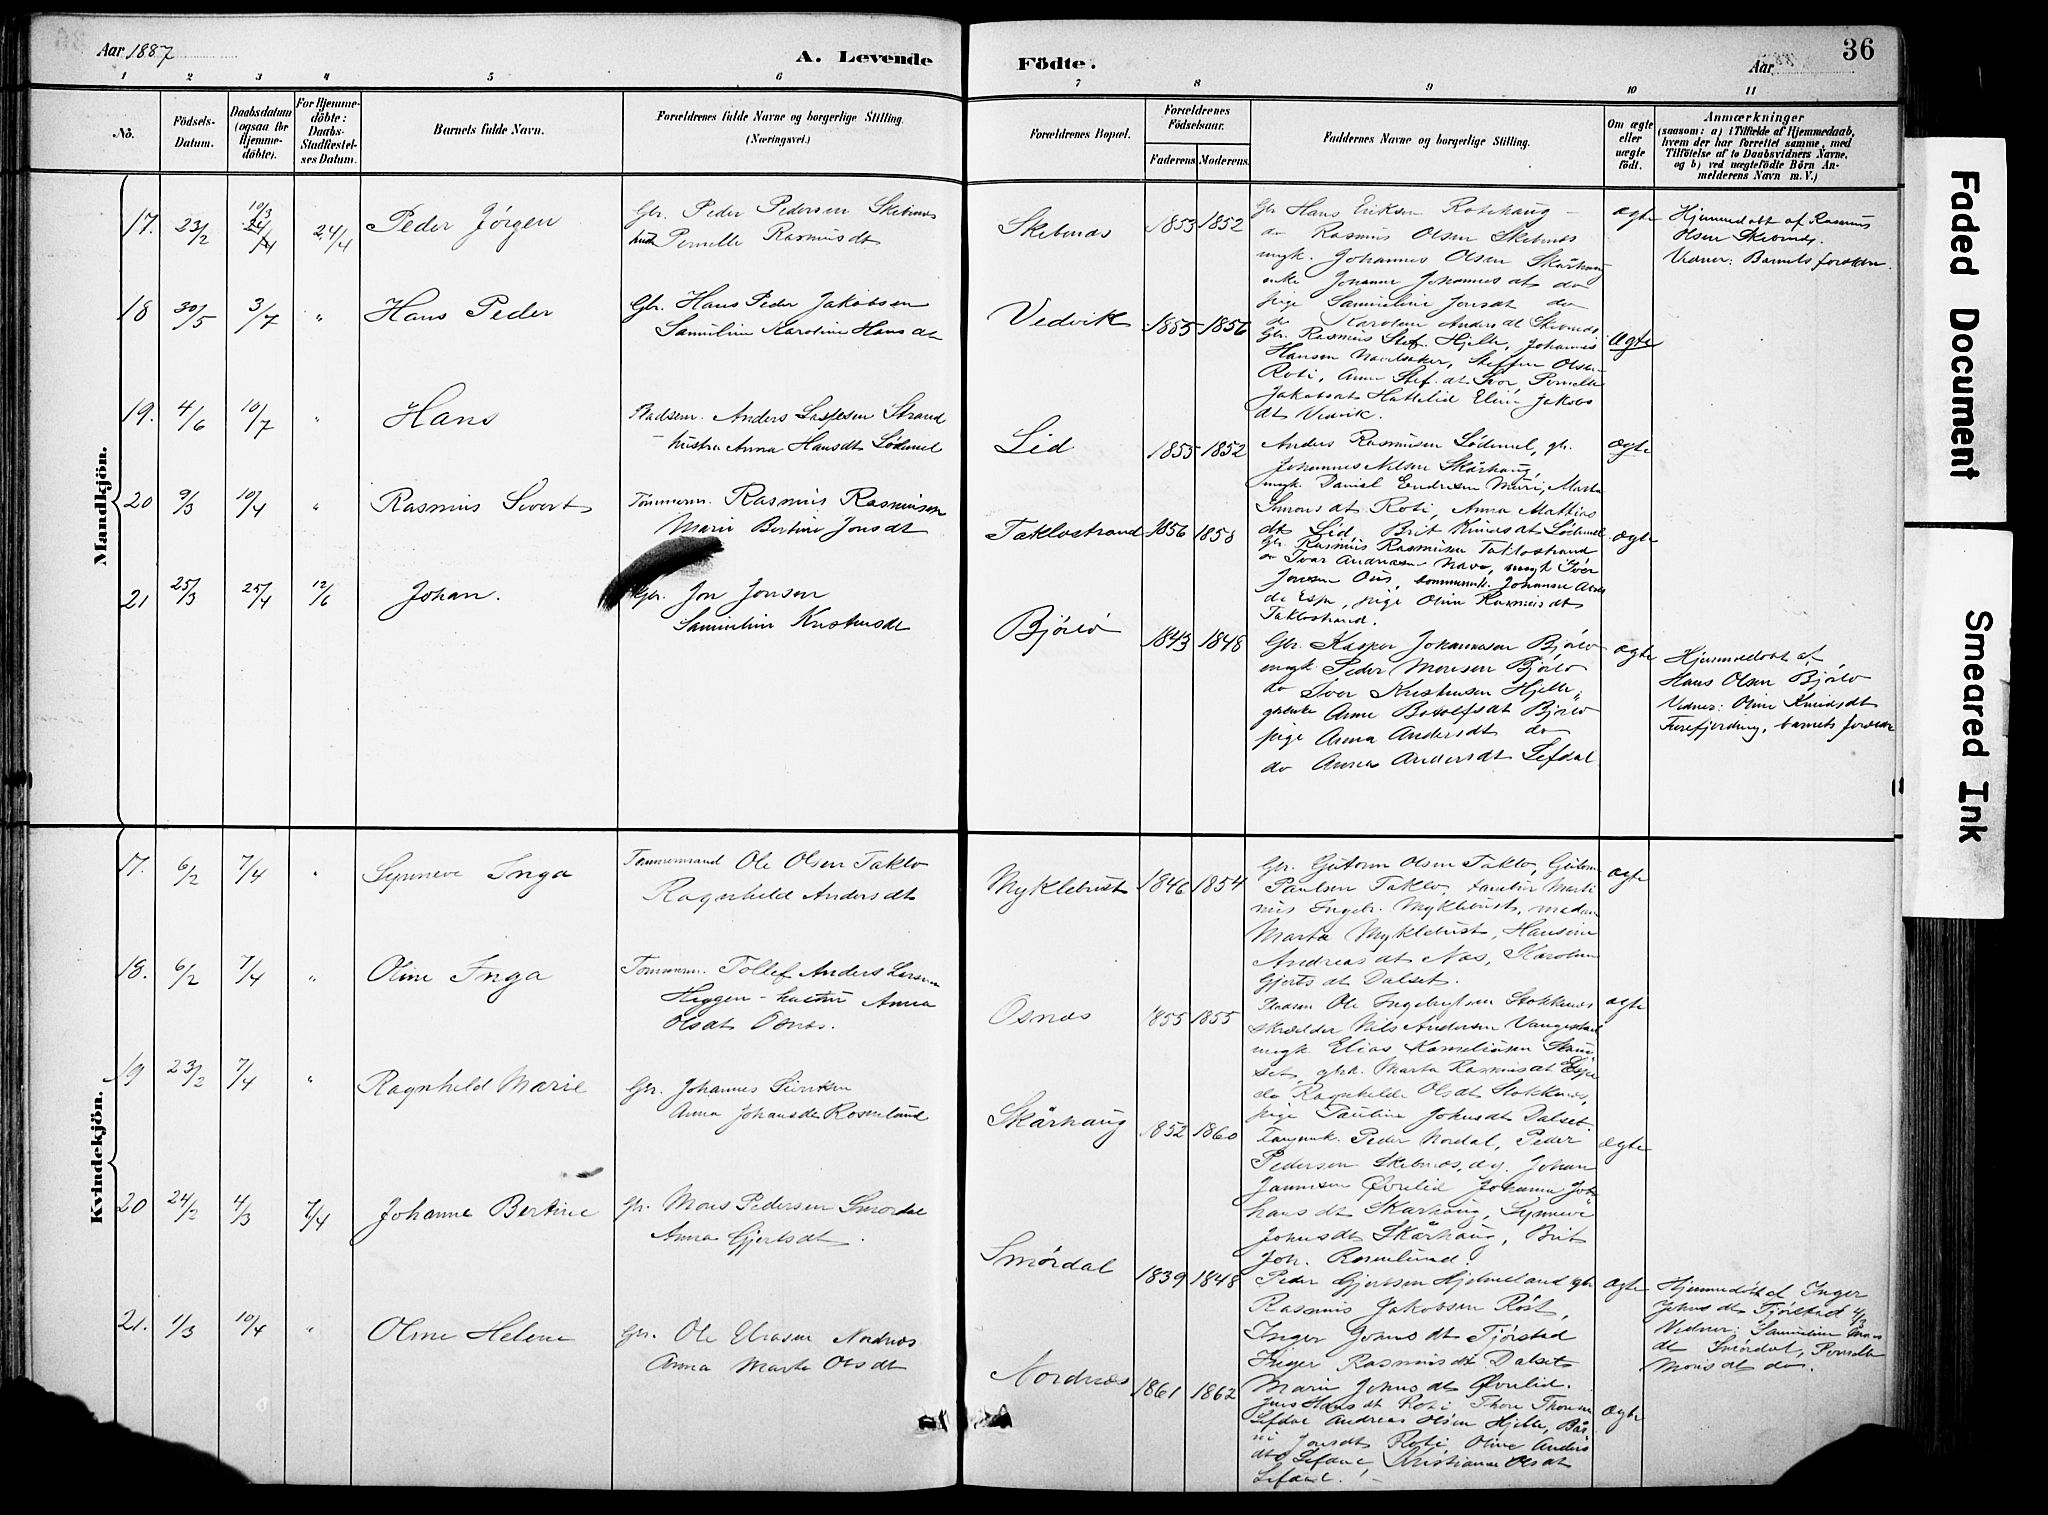 Aar 1887
A. Levende
Födte.
Aar
36
1 2 3 4 5 6 7 8 9 10 11
No.
Födsels-
Datum.
Daabsdatum
(ogsaa for
Hjemme-
döbte).
For Hjemme-
döbte:
Daabs-
Stadfæstel-
ses Datum.
Barnets fulde Navn.
Forældrenes fulde Navne og borgerlige Stilling.
(Næringsvei.)
Forældrenes Bopæl.
Forældrenes
Födselsaar.
Faderens. Moderens.
Faddernes Navne og borgerlige Stilling.
Om ægte
eller
uægte
födt.
Anmærkninger
(saasom: a) i Tilfælde af Hjemmedaab,
hvem der har forrettet samme, med
Tilföielse af to Daabsvidners Navne,
og b) ved uægtefödte Börn An-
melderens Navn m. V.)
Mandkjön.
17. 23/2 10/3 24/4 24/4 Peder Jörgen
Gbr. Peder Pedersen Skebnæs
Pernille Rasmusdt
Skebnæs 1853 1852
Gbr Hans Eriksen Rotehaug
do Rasmus Olsen Skebnæs
ungk. Johannes Olsen Skårhaug
enke Johanne Johannesdt do
pige Samueline Jonsdt do
do Karoline Andersdt Skebnæs
ægte
Hjemmedøbt af Rasmus
Olsen Skebnæs.
Vidner: Barnets forældre.
18 30/5 3/7 " Hans Peder
Gbr. Hans Peder Jakobsen
Samueline Karoline Hansdt
Vedvik 1855 1856
Gbr. Rasmus Stef. Hjelle, Johannes
Hansen Navelsaker, Steffen Olsen
Roti, Anne Stef.dt Pernille
Jakobsdt Hattelid Eline Jakobs
dt Vedvik.
Ægte
19. 4/6 10/7 " Hans
Pladsem. Anders Strand
hustru Anna Hansdt Lødemel
Lid 1855 1852
Anders Rasmussen Lødemel, gbr.
Johannes Nilsen Skårhaug,
ungk. Daniel Endresen Muri, Marta
Simonsdt Roti, Anna Mathias
dt Lid, Brit Knudsdt Lødemel
ægte
20 9/3 10/4 " Rasmus Sivert
Tømmerm. Rasmus Rasmussen
Marie Bertine Jonsdt
Taklostrand 1856 1858
Gbr. Rasmus Rasmussen Taklostrand
do Ivar Andreasen Nave, ungk Iver
Jonsen Øvs, Johanne
do Espe, pige Oline Rasmusdt
Taklostrand.
ægte
21 25/3 25/4 12/6 Johan.
Gbr. Jon Jonsen
Samueline Kristensdt
Bjørlo 1843 1848
Gbr. Kasper Johannesen Bjørlo
ungk. Peder Monsen Bjørlo
do Iver Kristensen Hjelle,
gbrenke Anne Botolfsdt Bjørlo
pige Anna Andersdt do
do Anna Andersdt Lefdal
ægte
Hjemmedøbt af
Hans Olsen Bjørlo
Vidner: Oline Knudsdt
barnets forældre
Kvindekjön.
17. 6/2 7/4 " Synneve Inga
Tømmermand Ole Olsen Taklo
Ragnhild Andersdt
Myklebust 1846 1854
Gbr. Guttorm Olsen Taklo, Guttorm
Paulsen Taklo, Marti
nus Ingebr. Myklebust, madam
Marta Myklebust, Hansine
Andreasdt Nos, Karoline
Gjertsdt Dalset.
ægte
18. 6/2 7/4 " Oline Inga
Tømmerm. Tollef Anders Larsen
Heggen - hustru Anna
Olsdt Osnæs.
Osnæs 1855 1855
Pladsm Ole Ingebrigtsen Stokkenes
skrædder Nils Andersen
ungk. Elias Korneliusen
set, gbk. Marta Rasmusdt Espe
do Ragnhilde Olsdt Stokkenes,
pige Pauline Johnsdt Dalset.
ægte
19 23/2 7/4 " Ragnhild Marie
Gbr. Johannes
Anna Johansdt Rosenlund
Skårhaug 1852 1860
Peder Nordal, Peder
Pedersen Skebnæs, Johan
Jannesen Øvrelid Johanne Joh
hansdt Skårhaug, Synneve
Johnsdt Skårhaug, Brit
Joh. Rosenlund.
ægte
20 24/2 4/3 7/4 Johanne Bertine
Gbr. Mons Pedersen Smørdal
Anna Gjertsdt.
Smørdal 1839 1848
Peder Gjertsen Hjelmeland gbr
Rasmus Jakobsen Røst,
Inger Johnsdt Tjørstad
Inger Rasmusdt Dalset
Marie Johnsdt Øvrelid.
ægte
Hjemmedøbt Inger
Johnsdt 4/3
Vidner: Samueline Mons
dt Smørdal, Pernille
Monsdt do.
21. 1/3 10/4 " Oline Helene
Gbr. Ole Eliasen Nordnæs
Anna Marta Olsdt
Nordnæs 1861 1862
Jens Hansdt Roti Thore Thorsen
Lefdal Andreas Olsen Hjelle,
Jonsdt Roti, Oline Anders
dt Lefdal Kristianne Olsdt
Lefdal.
ægte
Faded Document
Smeared Ink